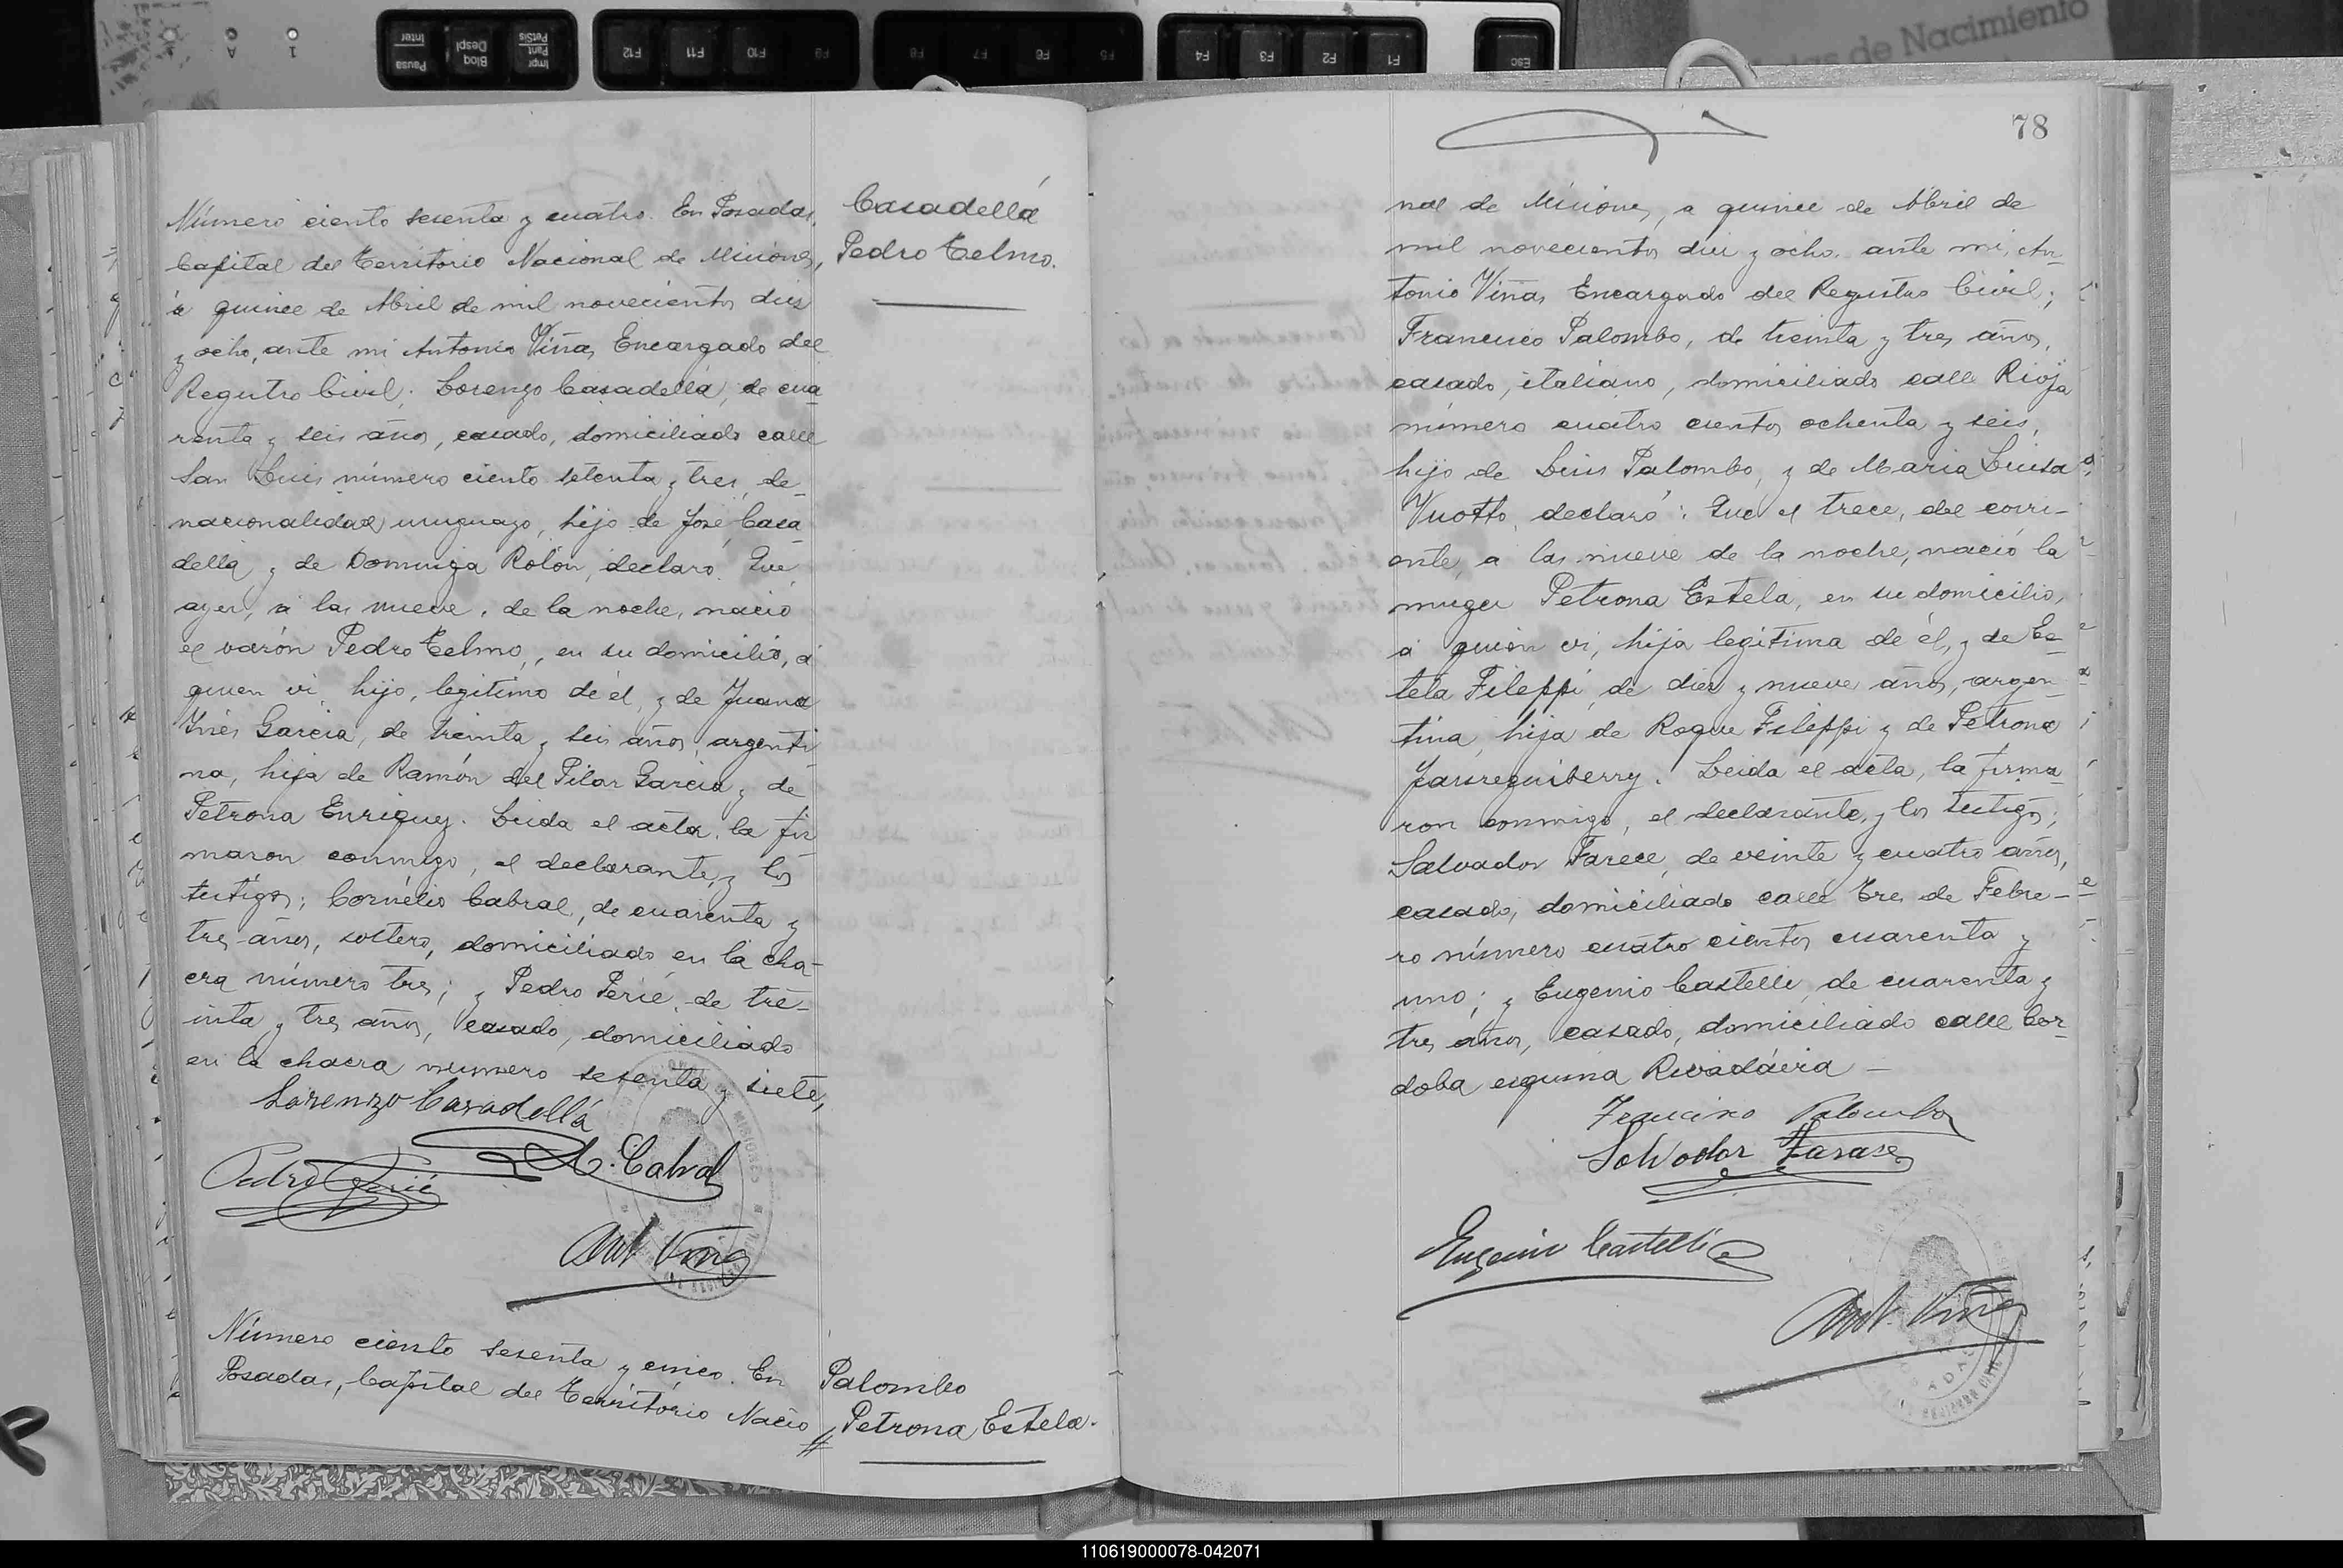 Número ciento sesenta y cuatro. En Posadas,
Capital del Territorio Nacional de Misiones,
á quince de Abril de mil novecientos diez
y ocho, ante mi Antonio Viñas, Encargado del
Registro Civil; Lorenzo Casadellá, de cua
renta y seis años, casado, domiciliado calle
San Luis número ciento setenta y tres, de
nacionalidad uruguayo, hijo de José Casa
dellá y de Dominga Rolón, declaró: Que
ayer, á las nueve, de la noche, nació
el varón Pedro Telmo, en su domicilio, á
quien vi, hijo, legítimo de él, y de Juana
Inés Garcia, de treinta y seis años, argenti
na, hija de Ramón del Pilar Garcia y de
Petrona Enriquez. Leida el acta, la fir
maron conmigo, el declarante, y los
testigos; Cornélio Cabral, de cuarenta y
tres años, soltero, domiciliado en la cha-
cra número tres; y Pedro Perié, de tre-
inta y tres años, casado, domiciliado
en la chacra numero sesenta y siete,
Lorenzo Casadellá
C. Cabral
Pedro Perié
Ant Viñas
Número ciento sesenta y cinco. En
Posadas, Capital del Territorio Nacio
Casadellá
Pedro Telmo.
Palombo
Petrona Estela.
78
nal de Misiones, a quince de Abril de
mil novecientos diez y ocho, ante mi, An-
tonio Viñas, Encargado del Registro Civil;
Francisco Palombo, de treinta y tres años,
casado, italiano, domiciliado calle Rioja
número cuatro cientos ochenta y seis,
hijo de Luis Palombo, y de Maria Luisa
Vuotto, declaró: Que el trece, del corri-
ente, a las nueve de la noche, nació la
muger Petrona Estela, en su domicilio,
á quién vi, hija legítima de él, y de Es-
tela Fileppi, de diez y nueve años, argen-
tina, hija de Roque Fileppi y de Petrona
Jaureguiberry. Leida el acta, la firma
ron conmigo, el declarante, y los testigos;
Salvador Farece, de veinte y cuatro años,
casado, domiciliado calle Tres de Febre-
ro número cuatro cientos cuarenta y
uno; y Eugenio Castelli, de cuarenta y
tres años, casado, domiciliado calle Cor-
doba esquina Rivadávia
Francisco Palombo
Salvador Farase
Eugenio Castelli
Ant. Viñas
de Nacimiento
Pausa
Inter
Bloq
Despl
Impr
Pant
PetSis
F12
F11
F10
F9
F8
F7
F6
F5
F4
F3
F2
F1
Esc
A
1
110619000078-042071